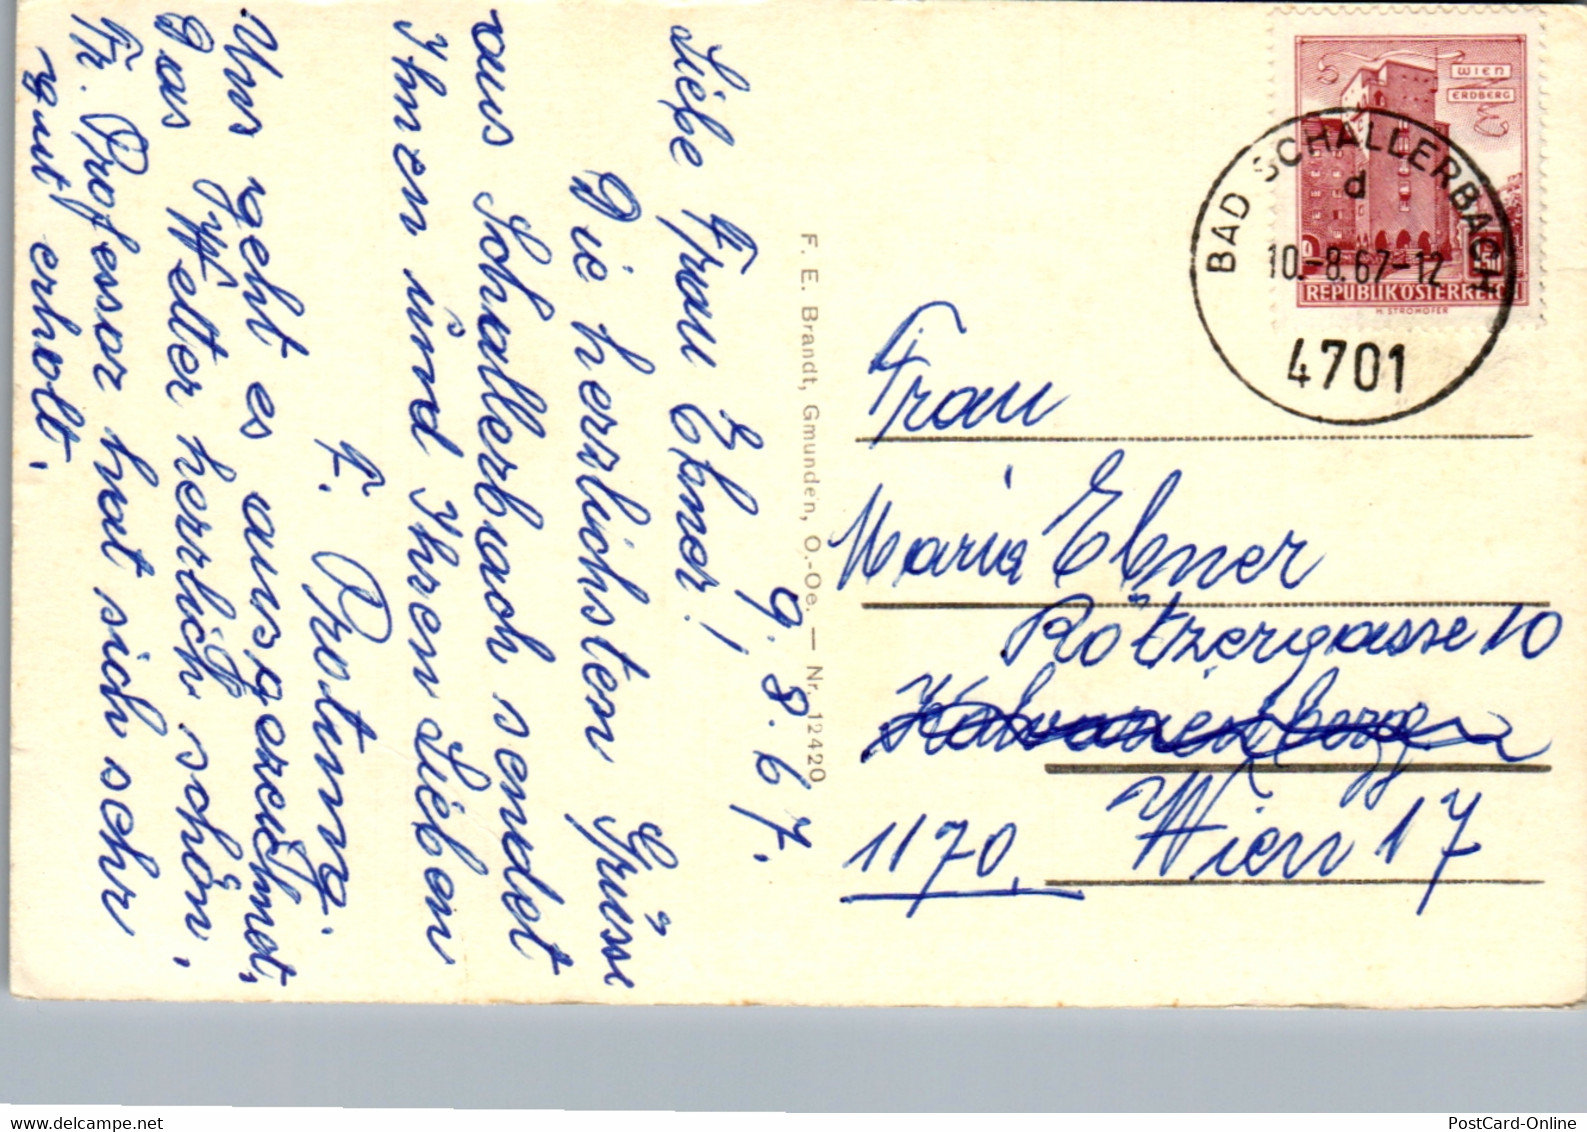 9. 8. 67.
Liebe Frau Ebner!
Die herzlichsten Grüsse
aus Schallerbach sendet
Ihnen und Ihren Lieben
F. Prottung.
Uns geht es ausgezeichnet,
Das Wetter herrlich schön,
Fr. Professor hat sich sehr
gut erholt.
F. E. Brandt, Gmunden, O.-Oe. — Nr. 12420
WIEN
ERDBERG
REPUBLIK ÖSTERREICH
H. STROHOFER
BAD SCHALLERBACH
d
10.-8.67-12
4701
Frau
Maria Ebner
Rötzergasse 10
1170, Wien 17
www.delcampe.net
PostCard-Online